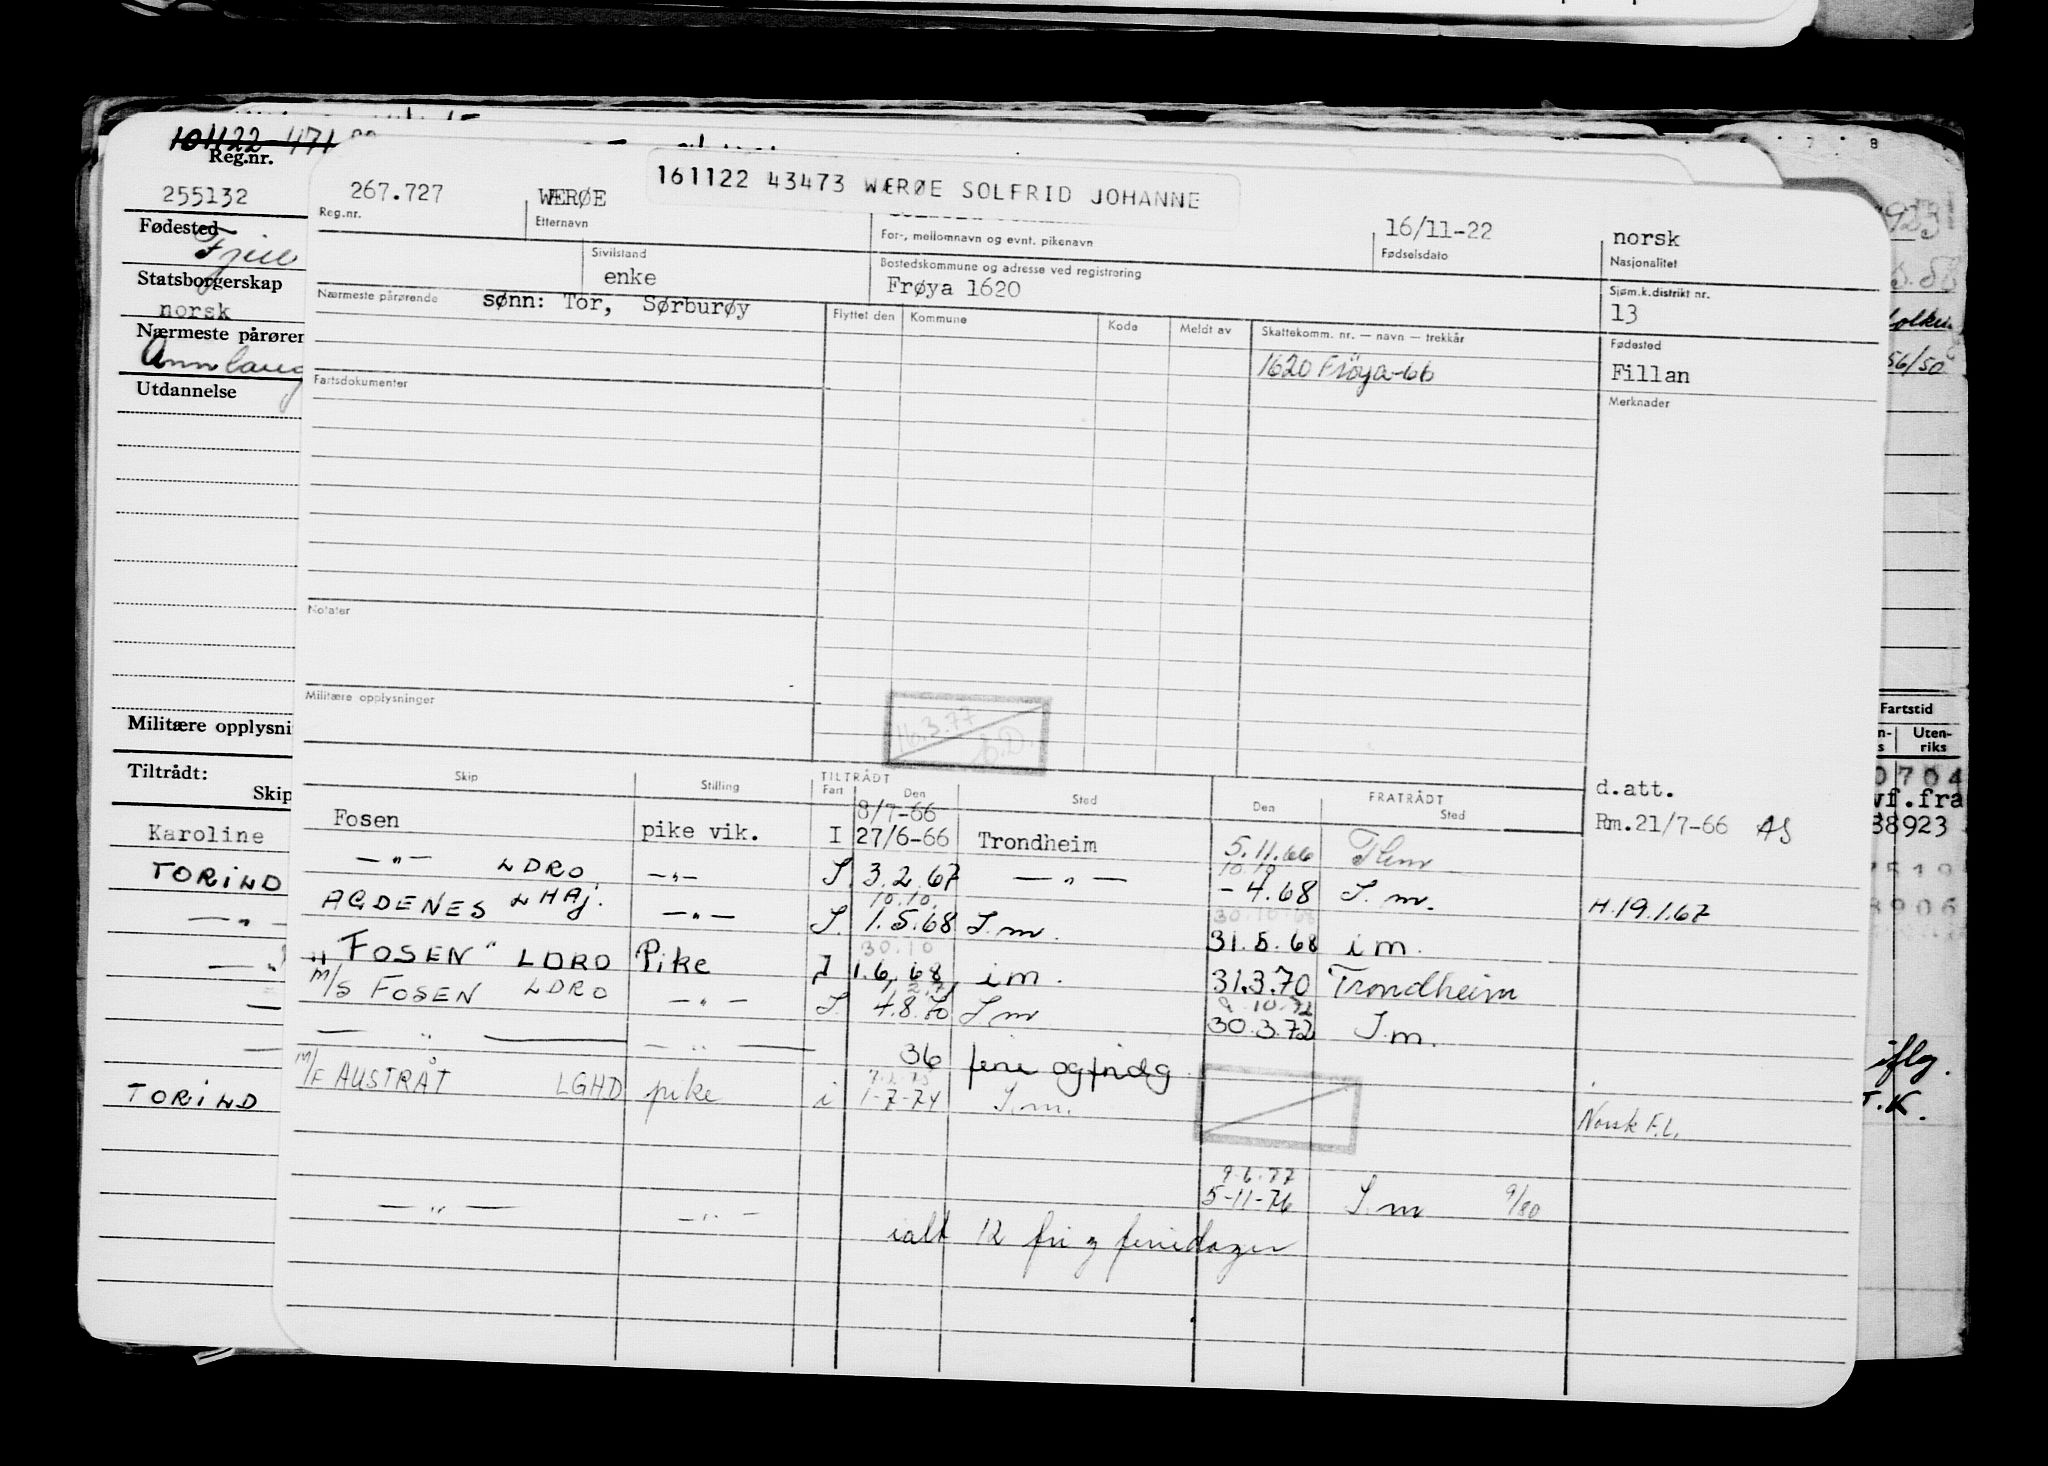 101122 471
Reg.nr.
255132
Fødested
Fjell
Statsborgerskap
norsk
Nærmeste pårøren
Annlaug
Utdannelse
Militære opplysni
Tiltrådt:
Skip
Karoline
TORIND
— " —
TORIND
267.727
Reg.nr.
WÆRØE
Etternavn
161122 43473 WÆRØE SOLFRID JOHANNE
For-, mellomnavn og evnt. pikenavn
16/11-22
Fødselsdato
norsk
Nasjonalitet
Sivilstand
enke
Bostedskommune og adresse ved registrering
Frøya 1620
Sjøm.k.distrikt nr.
13
Nærmeste pårørende sønn: Tor, Sørburøy
Flyttet den Kommune Kode Meldt av Skattekomm. nr. — navn — trekkår
1620 Frøya-66
Fødested
Fillan
Merknader
Fartsdokumenter
Notater
Militære opplysninger
16.3.77
Skip Stilling TILTRÅDT Fart Den Sted FRATRÅDT Den Sted
d.att.
8/7-66
Fosen pike vik. I 27/6-66 Trondheim 5.11.66 Thm Rm.21/7-66 AS
10.10
— " — LDRO — " — I. 3.2.67 — " — - 4.68 I.m. H.19.1.67
10.10. 30.10.68
AGDENES LHAJ. — " — I. 1.5.68 I.m. 31.5.68 i m.
30.10
"FOSEN" LDRO Pike I 1.6.68 i m. 31.3.70 Trondheim
9.10.72
M/S FOSEN LDRO — " — I. 4.8.70 I m 30.3.72 I.m.
— " — — " — 36 ferie og frideg
M/F AUSTRÅT LGHD pike i 1-7-74 I.m. Norsk F.L.
9.6.77
5-11-76 I.m 9/80
— " — — " — ialt 12 fri og feriedager
923
56/50
Fartstid
Uten-
riks
0704
vf.fra
38923
7519
8906
iflg.
T.K.